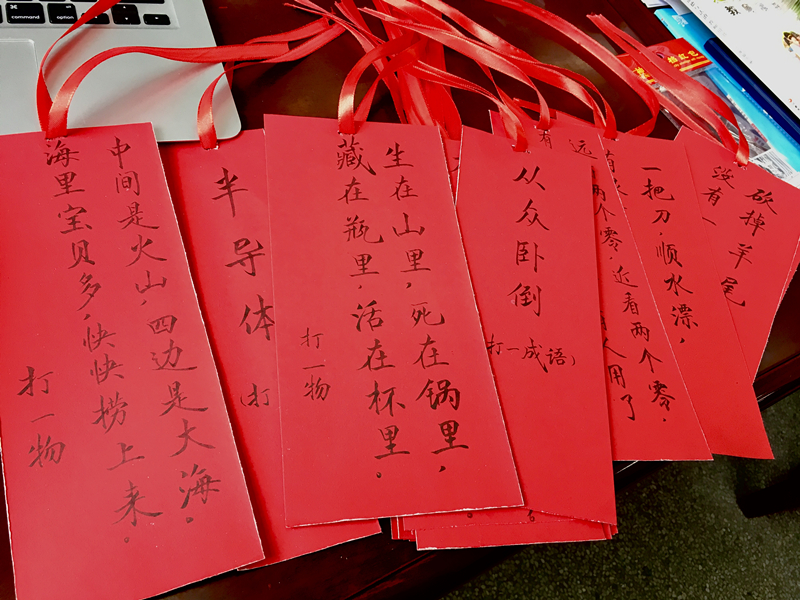 command
option
中间是火山,四边是大海。
海里宝贝多,快快捞上来。
打一物
半导体
(打
生在山里,死在锅里,
藏在瓶里,活在杯里。
打一物
从众卧倒
打一成语)
远
两个零,近看两个零,
有
人用了
一把刀,顺水漂,
砍掉羊尾
没有一